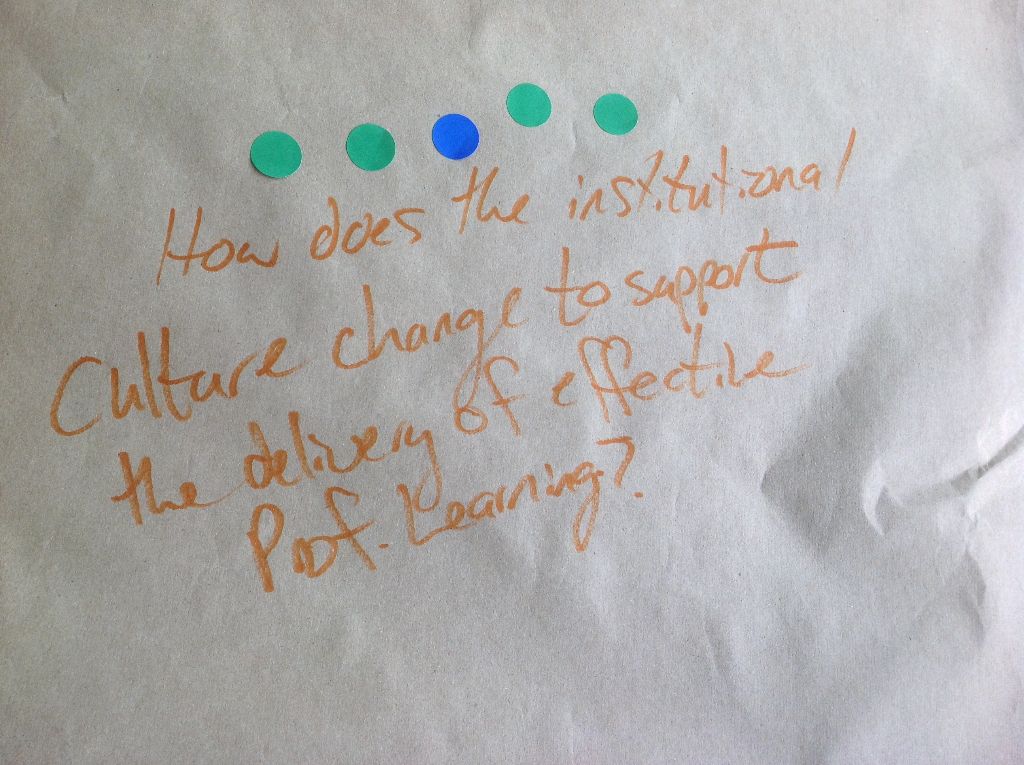 How does the institutional
Culture change to support
the delivery of effective
Prof. Learning?